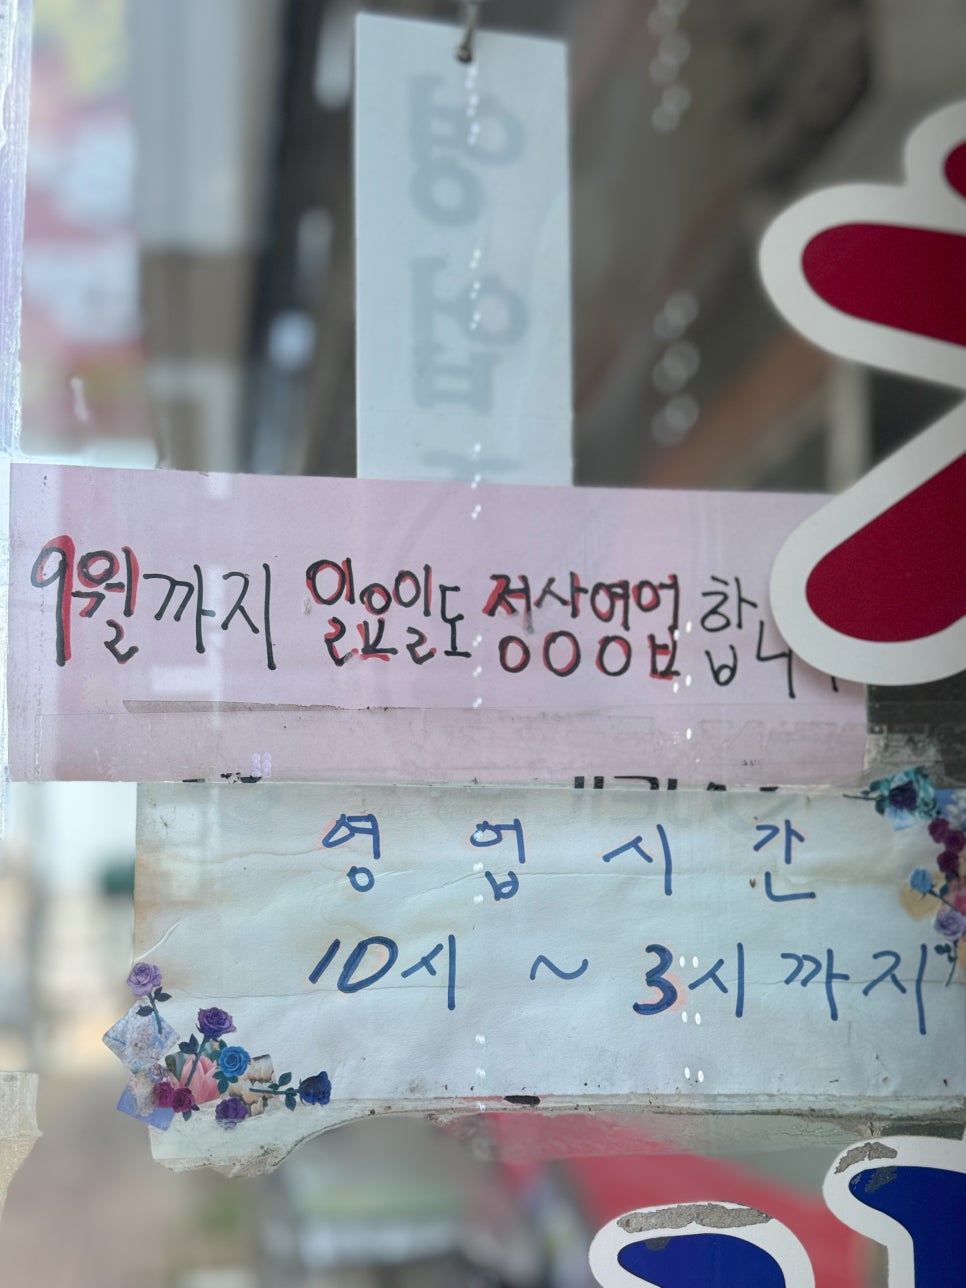 9월까지 일요일도 정상영업합니
영 업 시 간
10시 ~ 3시까지